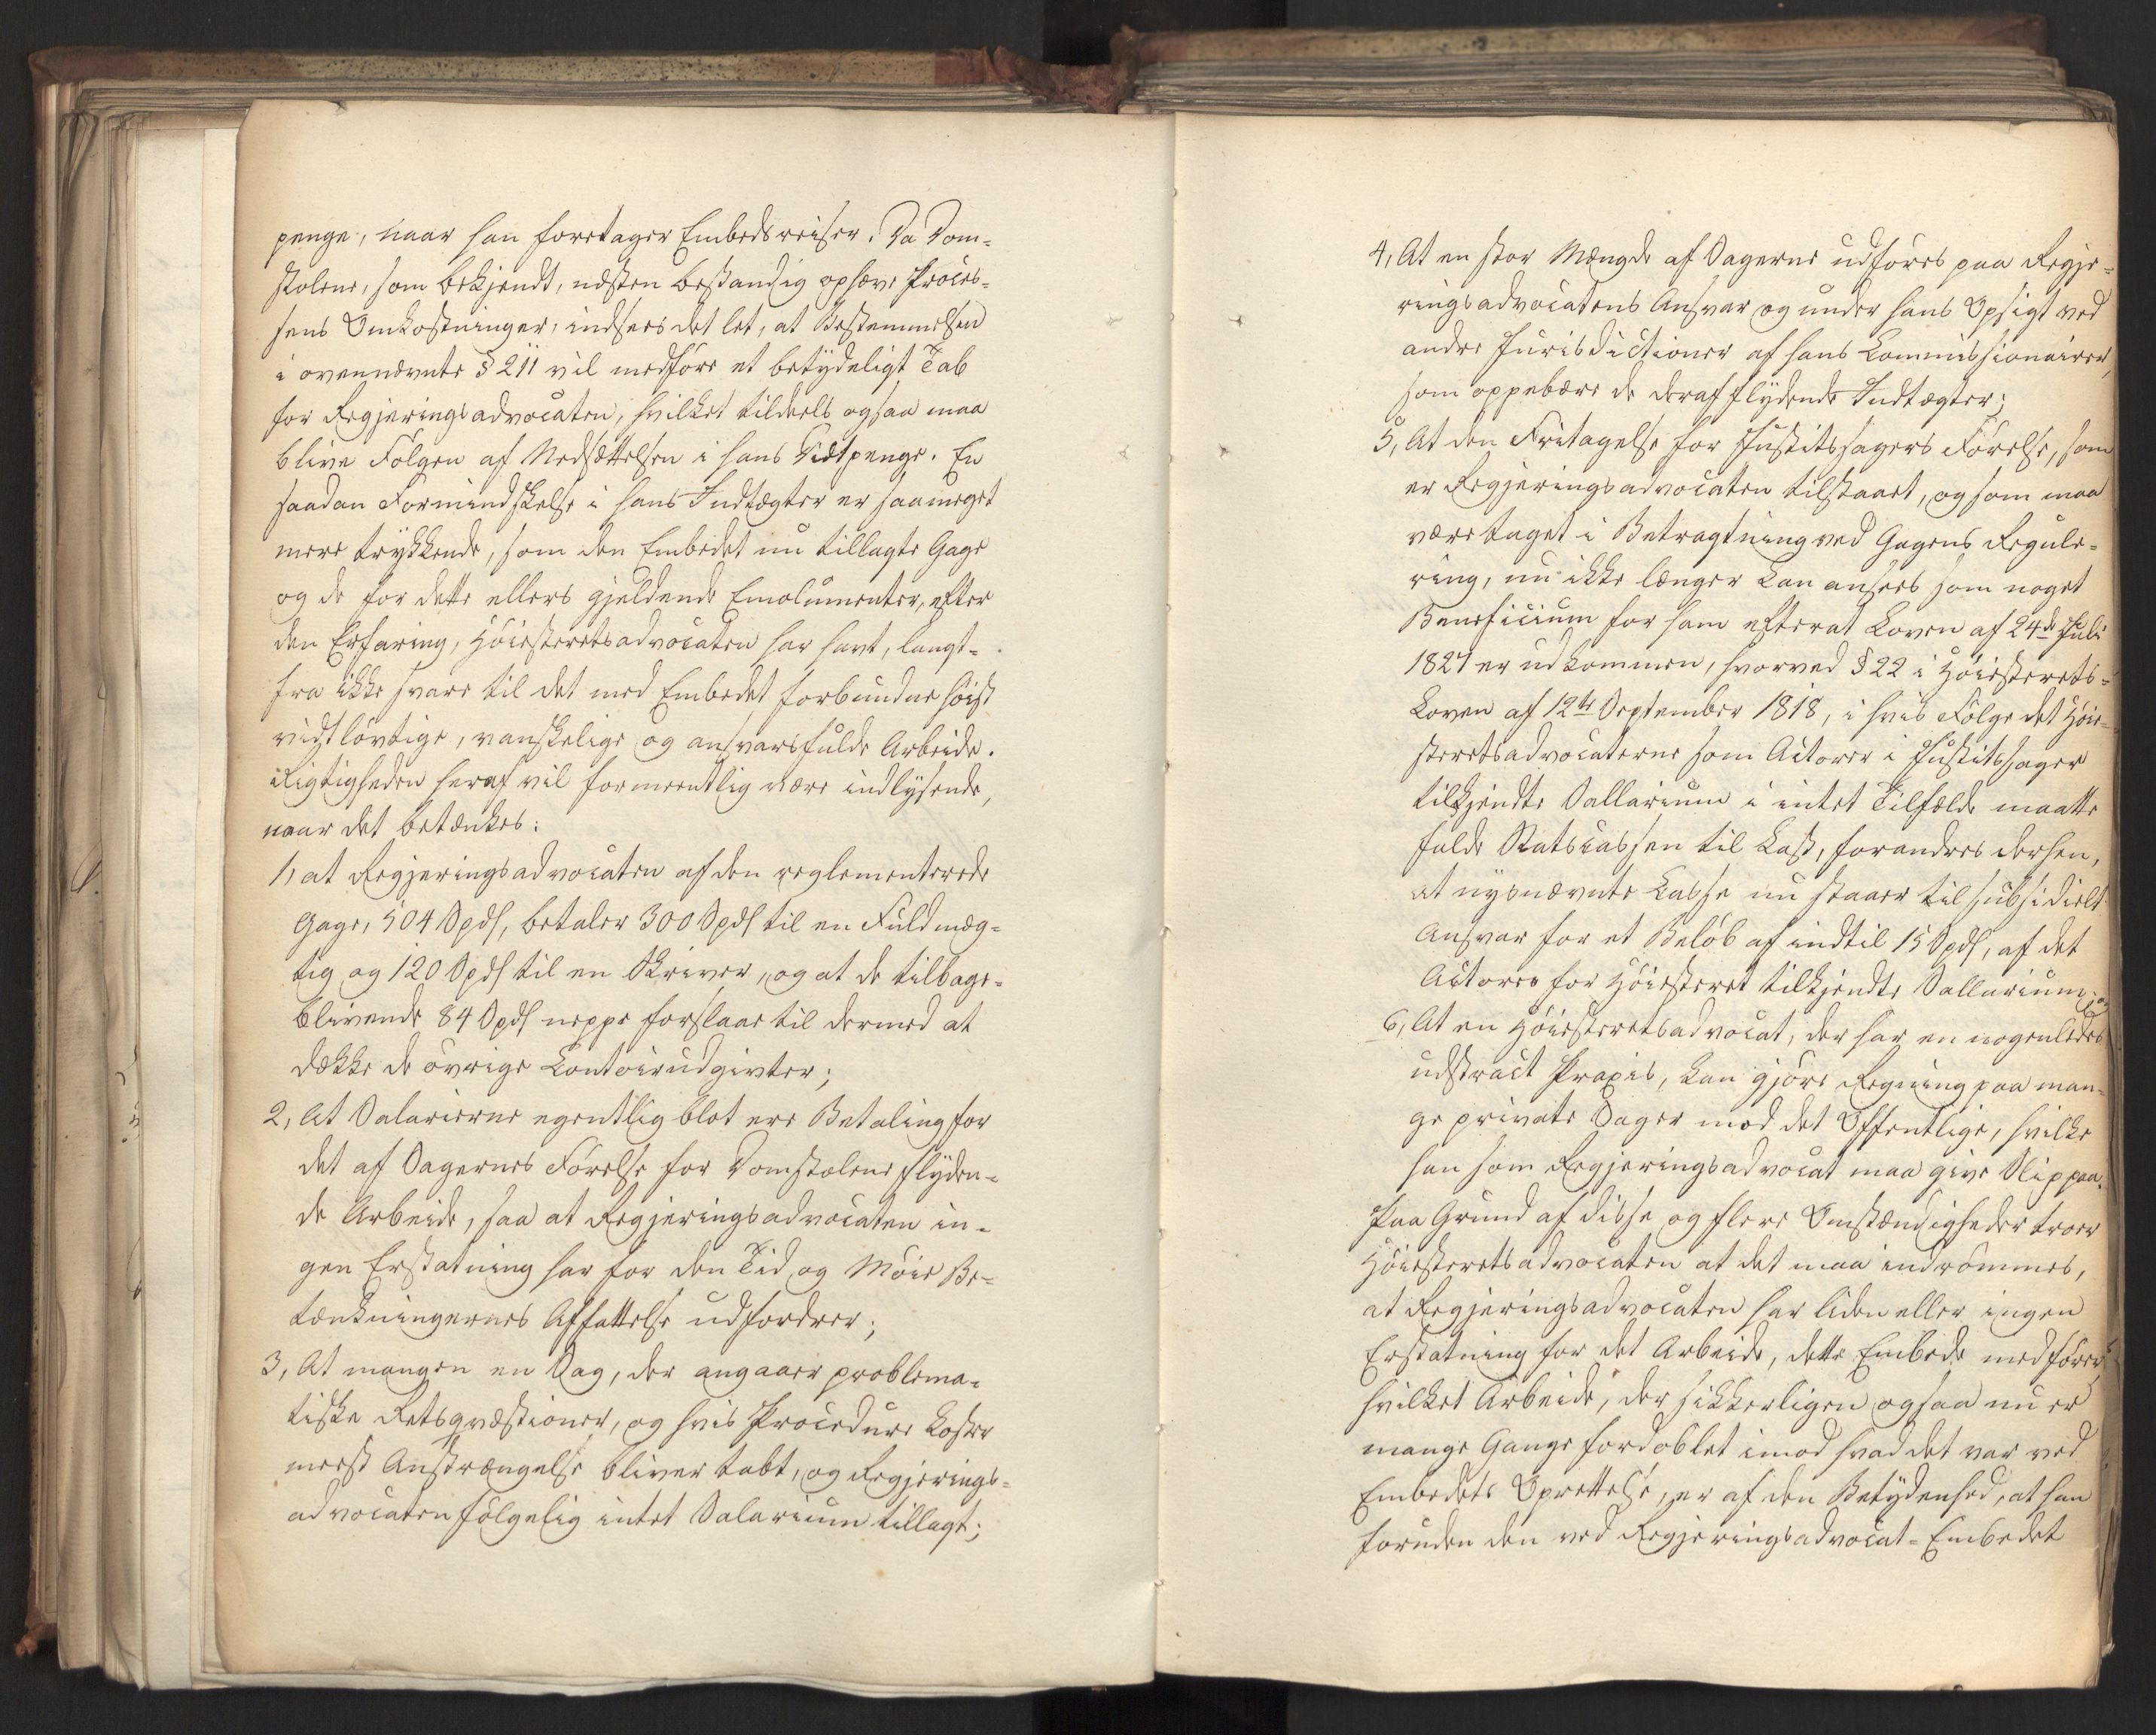 penge, naar han foretager Embedsreiser. Da Dom-
stolene, som bekjendt, næsten bestandig ophæve Proces-
sens Omkostninger, indsees det let, at Bestemmelsen
i ovennævnte § 211 vil medføre et betydeligt Tab
for Regjeringsadvocaten, hvilket tildeels ogsaa maa
blive Følgen af Nedsættelsen i hans Diætpenge. En
saadan Formindskelse i hans Indtægter er saameget
mere trykkende, som den Embedet nu tillagte Gage
og de for dette ellers gjeldende Emolumenter, efter
den Erfaring, Høiesteretsadvocaten har havt, langt-
fra ikke svare til det med Embedet forbundne høist
vidtløvtige, vanskelige og ansvarsfulde Arbeide.
Rigtigheden heraf vil formeentlig være indlysende,
naar det betænkes:
1, at Regjeringsadvocaten af den reglementerede
Gage, 504 Spd, betaler 300 Spd til en Fuldmæg-
tig og 120 Spd til en Skriver, og at de tilbage-
blivende 84 Spd neppe forslaae til dermed at
dække de øvrige Contoirudgivter;
2, At Salarierne egentlig blot ere Betaling for
det af Sagernes Førelse for Domstolene flyden-
de Arbeide, saa at Regjeringsadvocaten in-
gen Erstatning har for den Tid og Møie Be-
tænkningernes Affattelse udfordrer;
3, At mangen en Sag, der angaaer problema-
tiske Retsqvæstioner, og hvis Procedure koster
meest Anstrængelse bliver tabt, og Regjerings-
advocaten følgelig intet Salarium tillagt;
4, At en stor Mængde af Sagerne udføres paa Regje-
ringsadvocatens Ansvar og under hans Opsigt ved
andre Jurisdictioner af hans Commissionairer,
som oppebære de deraf flydende Indtægter;
5, At den Fritagelse for Justitssagers Førelse, som
er Regjeringsadvocaten tilstaaet, og som maa
være taget i Betragtning ved Gagens Regule-
ring, nu ikke længer kan ansees som noget
Beneficium for ham efterat Loven af 24de Juli
1827 er udkommen, hvorved § 22 i Høiesterets-
Loven af 12te September 1818, i hvis Følge det Høie-
steretsadvocaterne som Actorer i Justitssager
tilkjendte Sallarium i intet Tilfælde maatte
falde Statscassen til Last, forandres derhen,
at nysnævnte Casse nu staaer til subsidielt
Ansvar for et Beløb af indtil 15 Spd, af det
Actores for Høiesteret tilkjendte Sallarium; og
6, At en Høiesteretsadvocat, der har en nogenledes
udstract Praxis, kan gjøre Regning paa man-
ge private Sager mod det Offentlige, hvilke
han som Regjeringsadvocat maa give Slip paa.
Paa Grund af disse og flere Omstændigheder troer
Høiesteretsadvocaten at det maa indrømmes,
at Regjeringsadvocaten har liden eller ingen
Erstatning for det Arbeide, dette Embede medfører,
hvilket Arbeide, der sikkerligen ogsaa nu er
mange Gange fordoblet imod hvad det var ved
Embedets Oprettelse, er af den Betydenhed, at han
foruden den ved Regjeringsadvocat-Embedet